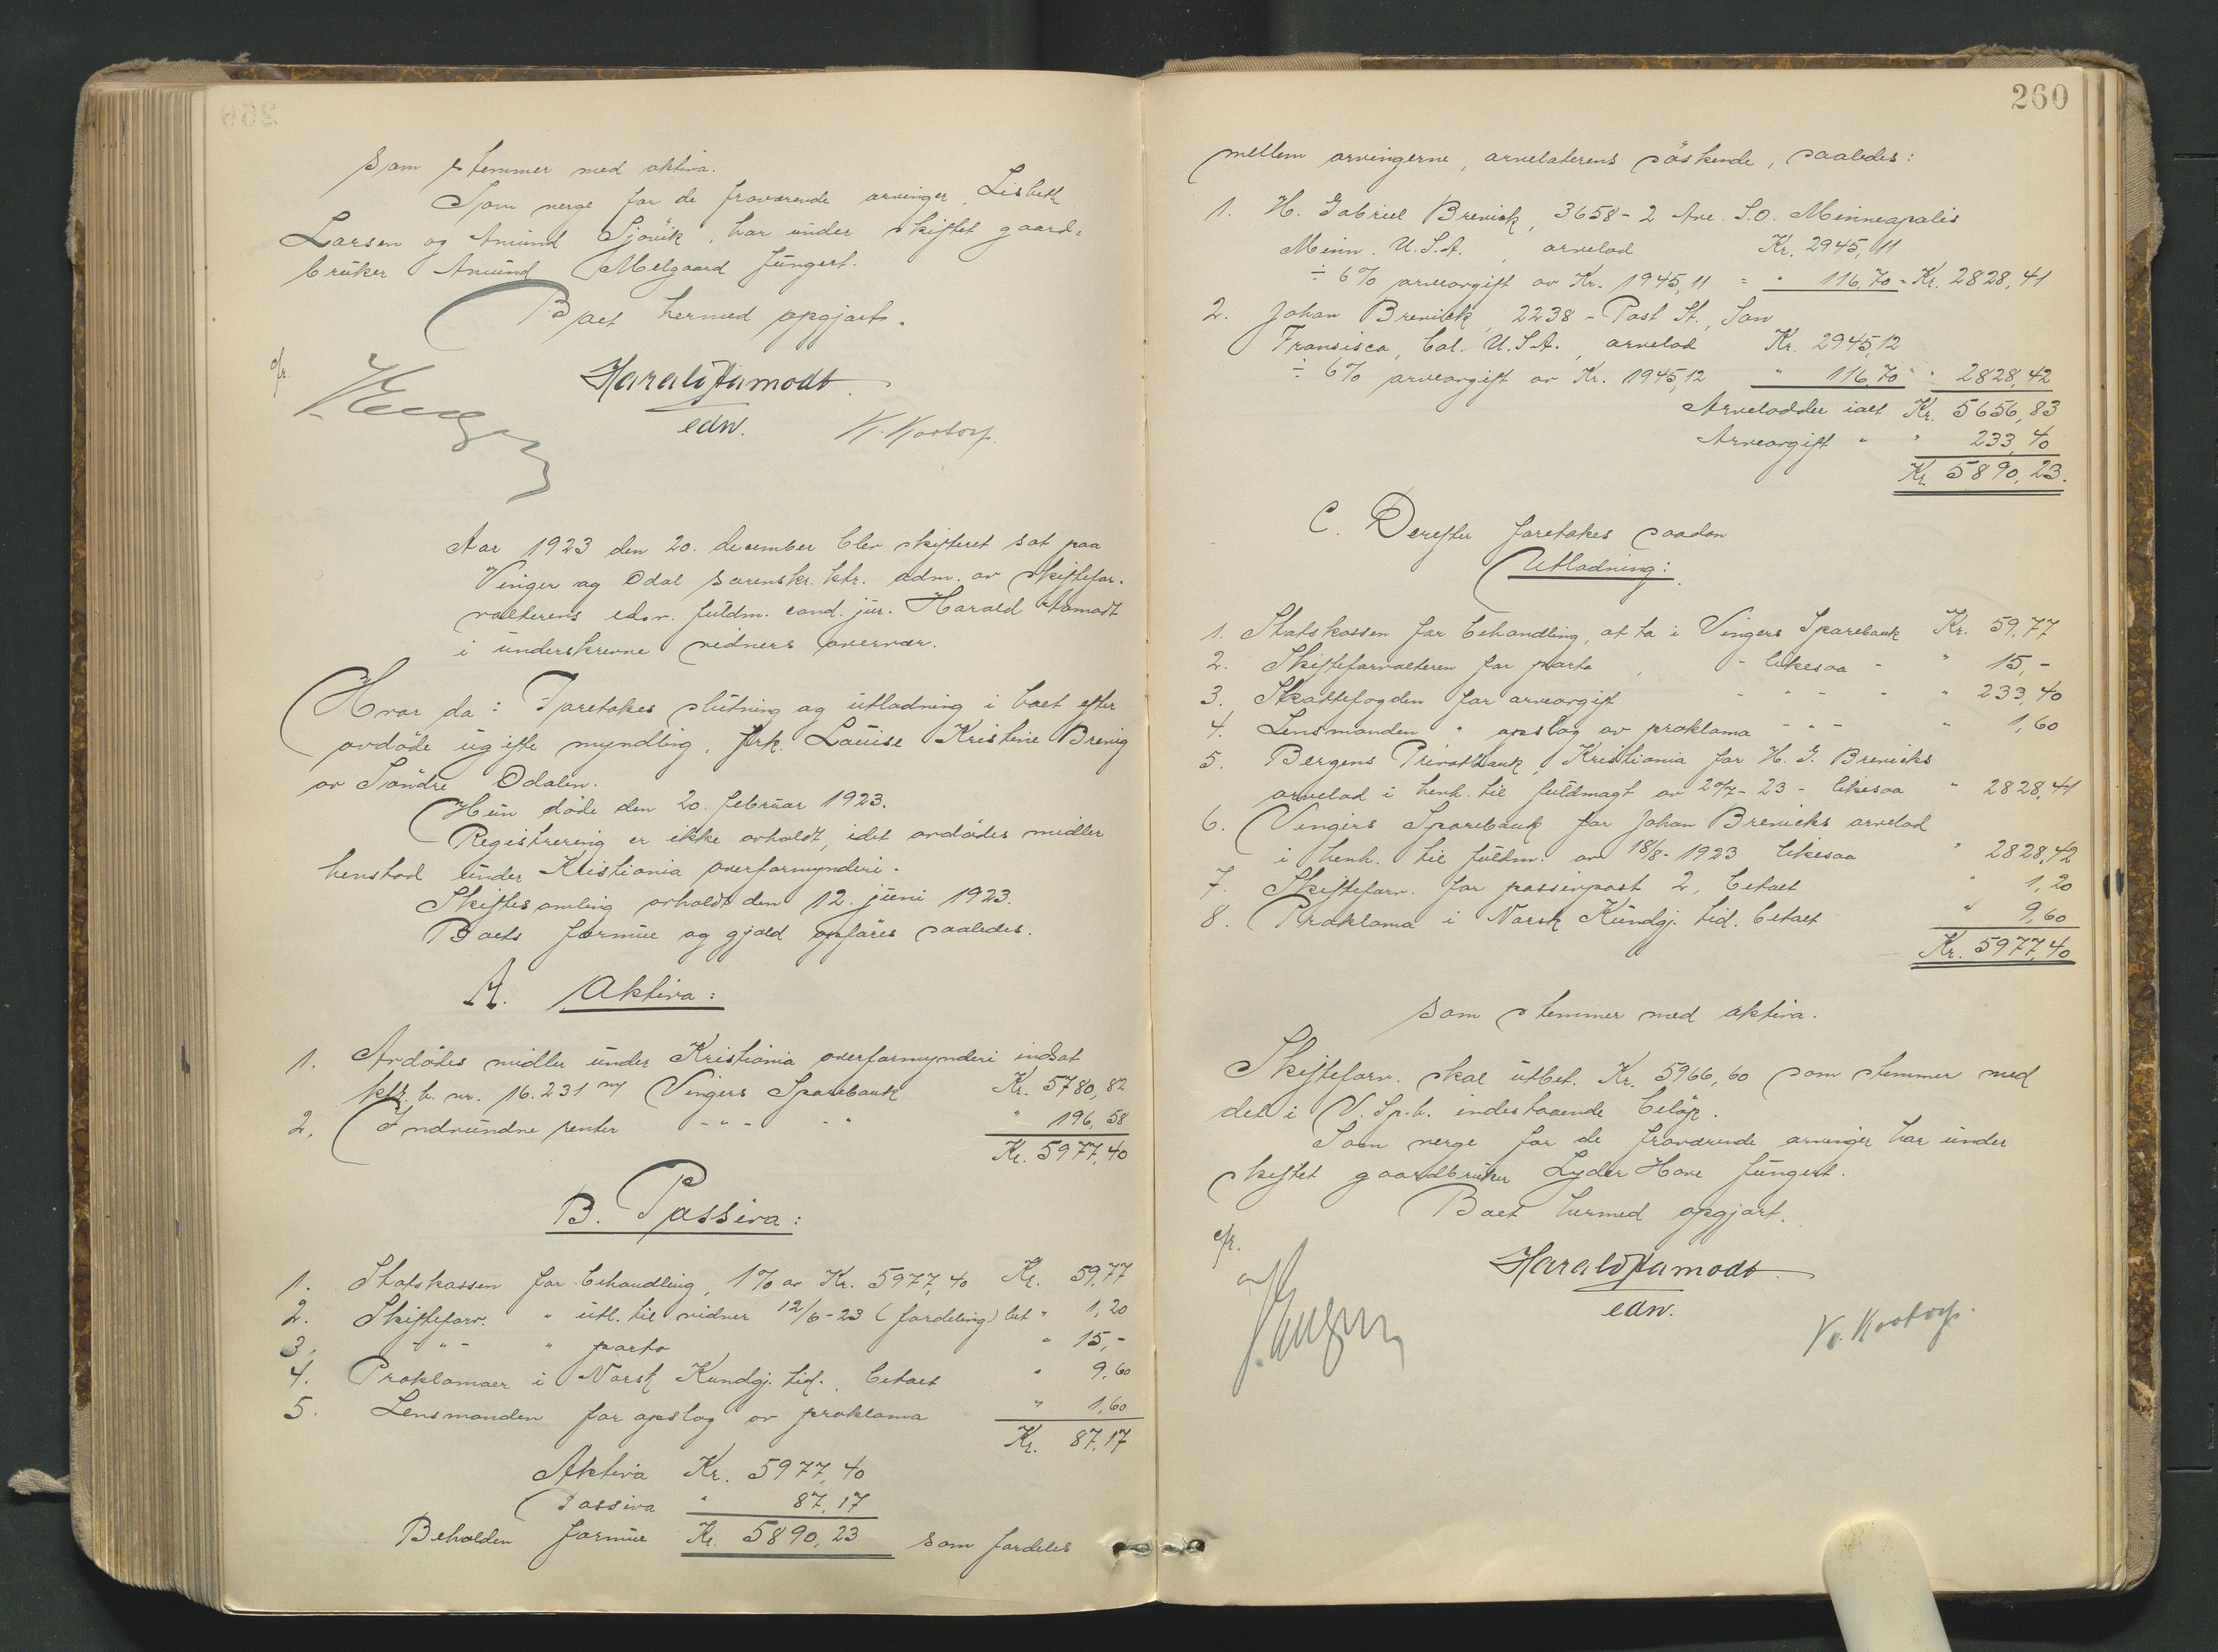 som stemmer med aktiva.
Som verge for de fraværende arvinger, Lisbeth
Larsen og Amund Sjøvik, har under skiftet gaard-
bruker Amund Melgaard fungert.
Boet hermed opgjort.
Harald Aamodt
edsv.
K. Kostorp.
Aar 1923 den 20. december blev skifteret sat paa
Vinger og Odal sorenskr. ktr. adm. av skiftefor-
valterens edsv. fuldm. cand. jur. Harald Aamodt
i underskrevne vidners overvær.
Hvor da: Foretokes slutning og utlodning i boet efter
avdöde ugifte myndling, frk. Lauise Kristine Brevig
av Söndre Odalen.
Hun döde den 20. februar 1923.
Registrering er ikke avholdt, idet avdödes midler
henstod under Kristiania overformynderi.
Skiftesamling avholdt den 12. juni 1923.
Boets formue og gjæld opföres saaledes.
A. Aktiva:
1. Avdödes midler under Kristiania overformynderi indsat
ktr. b. nr. 16.231 ny Vingers Sparebank Kr. 5780,82
2. Indvundne renter - " - " " 196,58
Kr. 5977,40
B. Passiva:
1. Statskassen for behandling, 1% av Kr. 5977,40 Kr. 59,77
2. Skifteforv. " utl. til vidner 12/6-23 (fordeling) bet " 1,20
3. - " - " porto " 15,-
4. Proklamaer i Norsk Kundgj. tid. betalt " 9,60
5. Lensmanden for opslag av proklama " 1,60
Kr. 87,17
Aktiva Kr. 5977,40
Passiva " 87,17
Beholden formue Kr. 5890,23 som fordeles
260
mellem arvingerne, arvelaterens söskende, saaledes:
1. H. Gabriel Brevick, 3658 - 2 Ave. S.O. Minneapolis
Minn. U.S.A., arvelod Kr. 2945,11
÷ 6% arveavgift av Kr. 1945,11 = " 116,70 = Kr. 2828,41
2. Johan Brevick, 2238 - Post St., San
Fransisco, Cal. U.S.A., arvelod Kr. 2945,12
÷ 6% arveavgift av Kr. 1945,12 " 116,70 " 2828,42
Arvelodder ialt Kr. 5656,83
Arveavgift " " 233,40
Kr. 5890,23.
C. Derefter foretokes saadan
Utlodning:
1. Statskassen for behandling, at ta i Vingers Sparebank Kr. 59,77
2. Skifteforvalteren for porto, - likesaa - " 15,-
3. Skattefogden for arveavgift - " - " - " 233,40
4. Lensmanden " opslag av proklama - " - " 1,60
5. Bergens Privatbank, Kristiania for H. G. Brevicks
arvelod i henh. til fuldmagt av 20/7-23 - likesaa " 2828,41
6. Vingers Sparebank for Johan Brevicks arvelod
i henh. til fuldm. av 18/8-1923 likesaa " 2828,42
7. Skifteforv. for passivpost 2, betalt " 1,20
8. Proklama i Norsk Kundgj. tid. betalt " 9,60
Kr. 5977,40
som stemmer med aktiva.
Skifteforv. skal utbet. Kr. 5966,60 som stemmer med
det i V. Sp.b. indestaaende beløp.
Som verge for de fraværende arvinger har under
skiftet gaardbruker Lyder Hove fungert.
Boet hermed opgjort.
Harald Aamodt
edsv.
K. Kostorp.